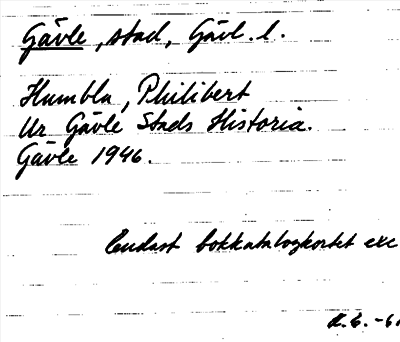 Gävle, stad, Gävl. l.
Humbla, Philibert
Ur Gävle Stads Historia.
Gävle 1946.
Endast bokkatalogkortet exc